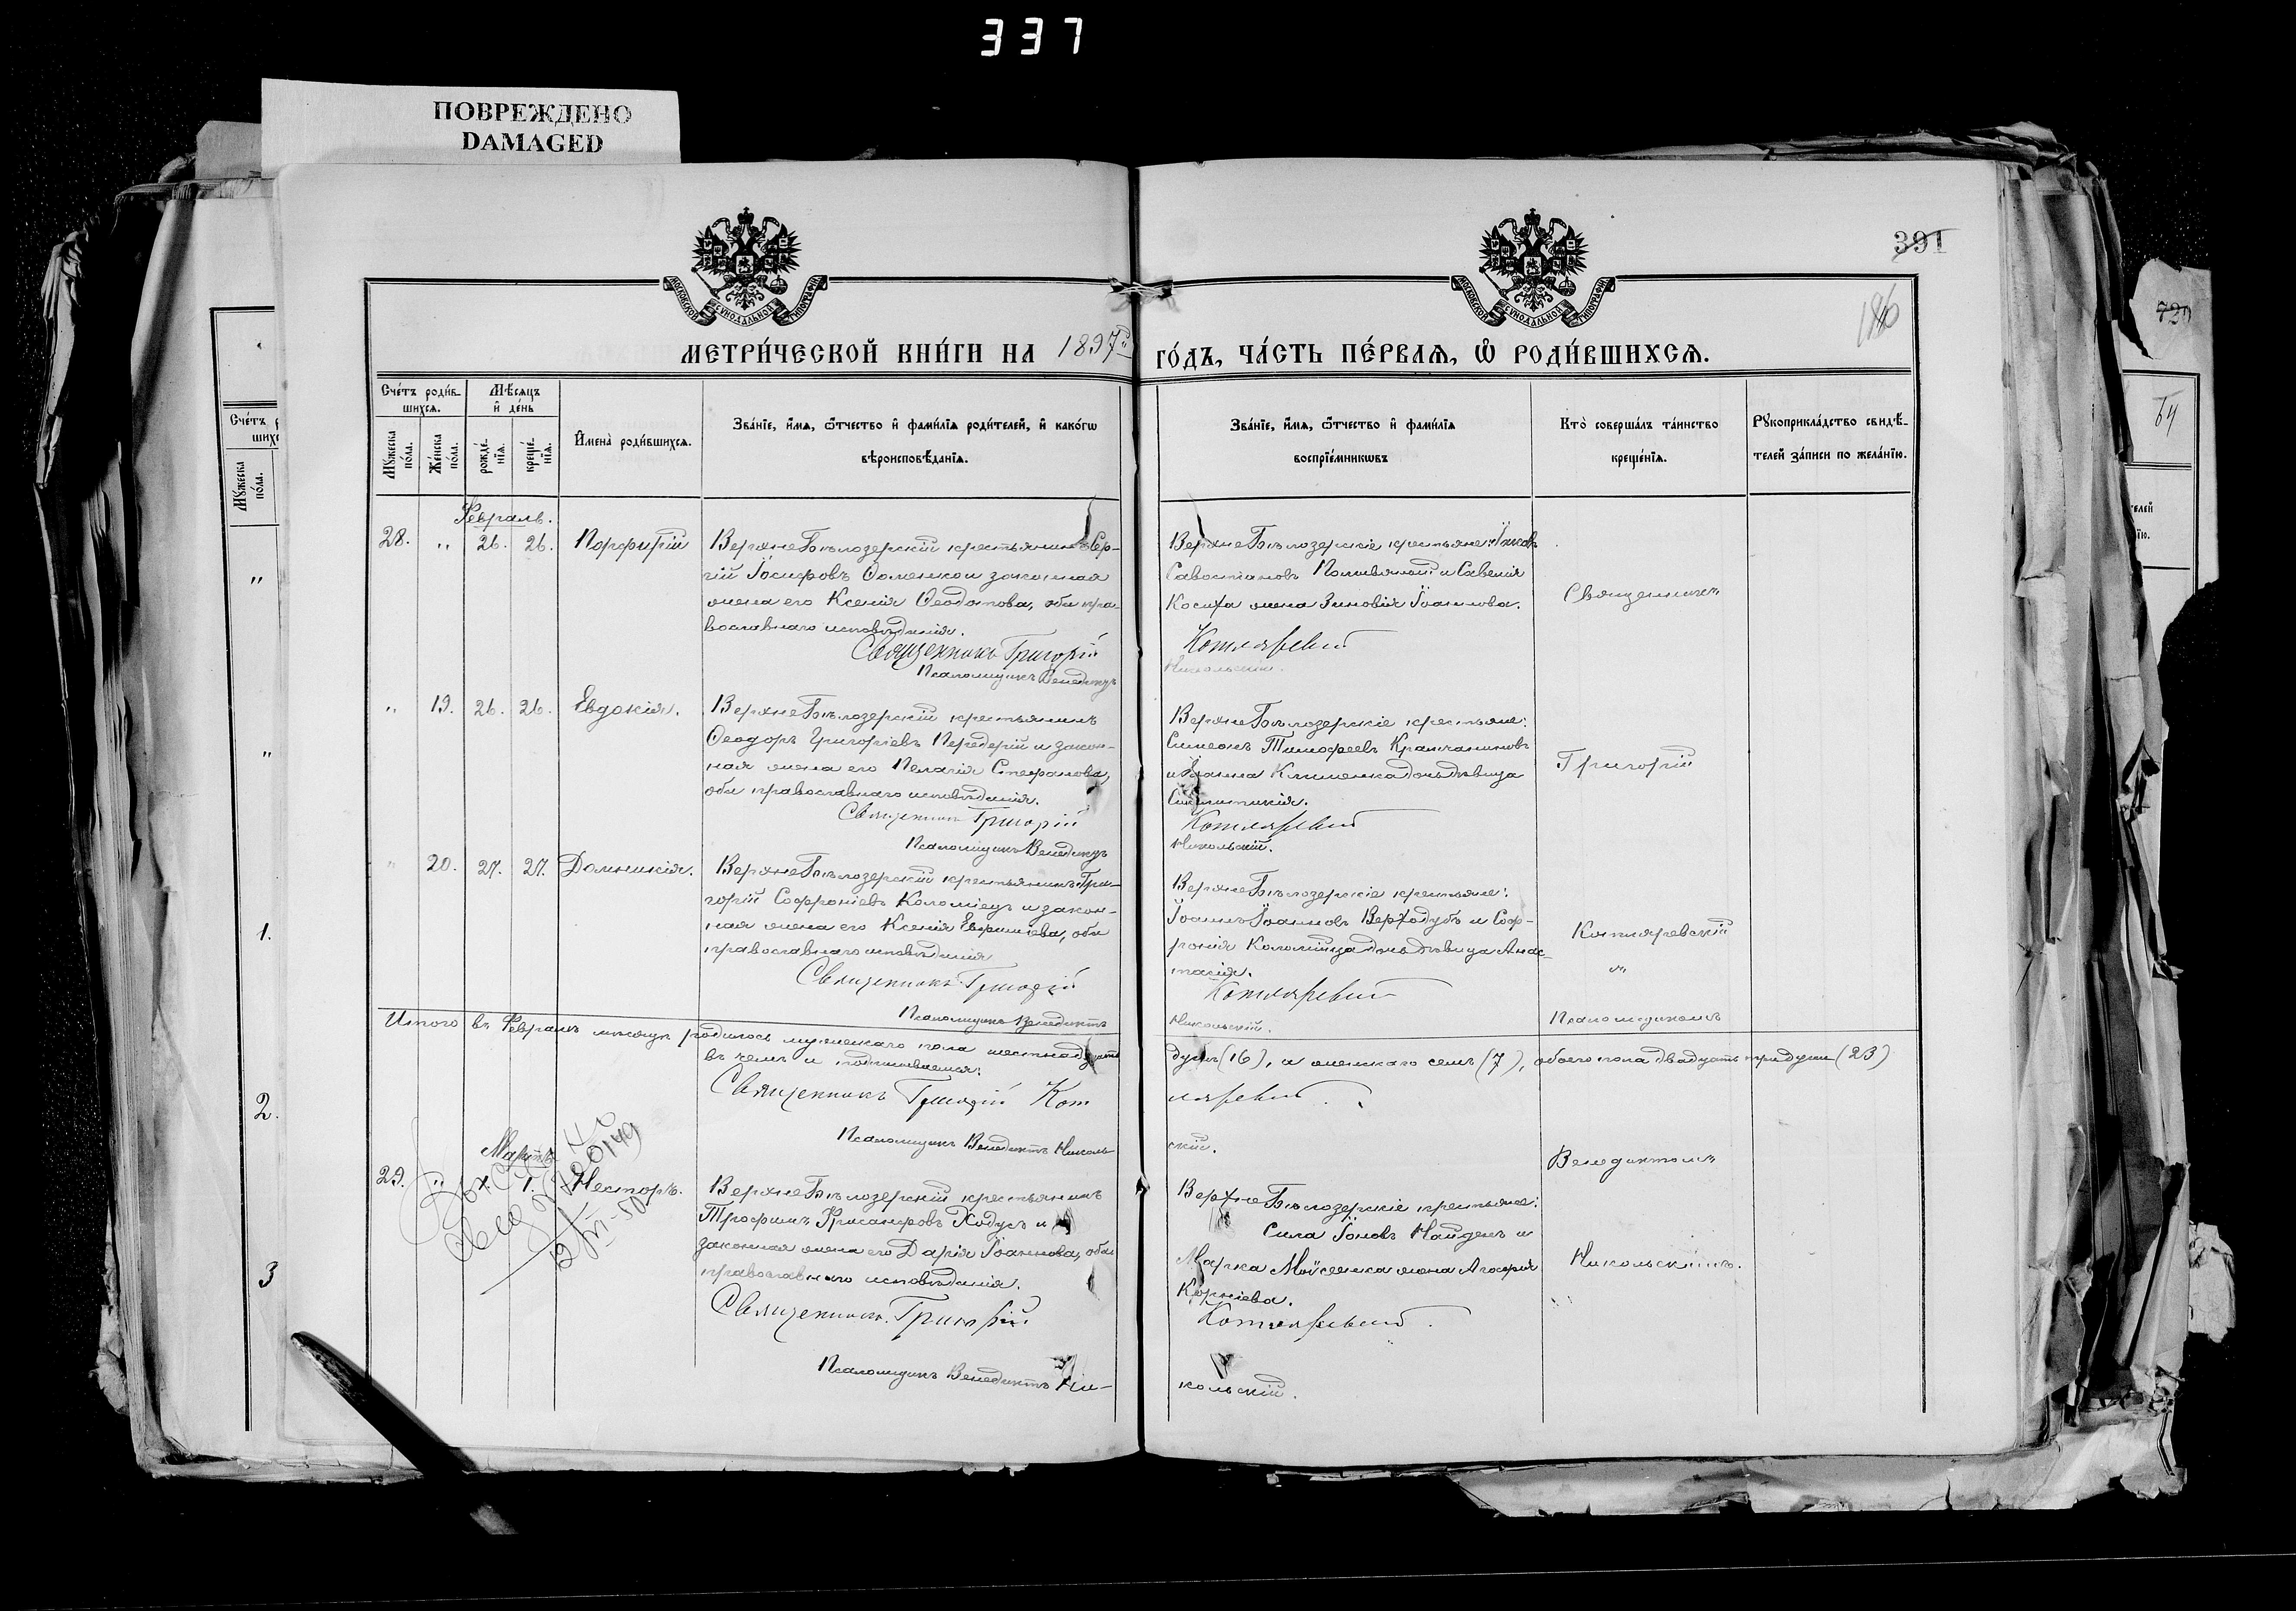 337
ПОВРЕЖДЕНО
DAMAGED
391
МЕТРИ́ЧЕСКОЙ КНИ́ГИ НА 1897й
ГО́ДЪ, ЧА́СТЬ ПЕ́РВАѦ, Ѽ РОДИ́ВШИХСѦ.
Сче́тъ роди́в-
шихсѧ.
Мꙋ́жеска по́ла.
Же́нска по́ла.
Мѣ́сѧцъ
и҆ де́нь
рожде́нїѧ.
креще́нїѧ.
И҆мена̀ роди́вшихсѧ.
Зва́нїе, и҆́мѧ, ѻ҆́тчество и҆ фами́лїѧ роди́телей, и҆ како́гѡ
вѣроисповѣ́данїѧ.
Зва́нїе, и҆́мѧ, ѻ҆́тчество и҆ фами́лїѧ
воспрїе́мникѡвъ
Кто̀ соверша́лъ та́инство
креще́нїѧ.
Рꙋкоприкла́дство свидѣ́-
телей за́писи по жела́нїю.
Февраль.
28. " 26. 26. Порфирій
ВерхнеБѣлозерскій крестьянинъ Сер-
гій Іосифовъ Доменко и законная
жена его Ксенія Ѳеодотова, оба пра-
вославнаго исповѣданія.
Священникъ Григорій
Псаломщикъ Венедиктъ
ВерхнеБѣлозерскіе крестьяне: Іаковъ
Савостіановъ и Савелія
Косиха жена Зиновія Іоаннова.
Котляревскій
Никольскій.
Священникъ
" 19. 26. 26. Евдокія.
ВерхнеБѣлозерскій крестьянинъ
Ѳеодоръ Григоріевъ Передерій и закон-
ная жена его Пелагія Стефанова,
оба православнаго исповѣданія.
Священникъ Григорій
Псаломщикъ Венедиктъ
ВерхнеБѣлозерскіе крестьяне:
Симеонъ Тимофеевъ
и Іоанна Клименка дочь дѣвица
Котляревскій
Никольскій.
Григорій
" 20. 27. 27. Домникія.
ВерхнеБѣлозерскій крестьянинъ Гри-
горій Софроніевъ Коломіецъ и закон-
ная жена его Ксенія Евфиміева, оба
православнаго исповѣданія
Священникъ Григорій
Псаломщикъ Венедиктъ
ВерхнеБѣлозерскіе крестьяне:
Іоаннъ Іоанновъ Верходубъ и Соф-
ронія Коломійца дочь дѣвица Анас-
тасія.
Котляревскій
Никольскій.
Котляревскій
"
Псаломщикомъ
Итого въ Февралѣ мѣсяцѣ родилось мужескаго пола шестнадцать
душъ (16), а женскаго семь (7), обоего пола двадцать три души (23)
въ чемъ и подписываемся:
Священникъ Григорій Кот
ляревскій.
Псаломщикъ Венедиктъ Николь-
скій.
Венедиктомъ
Мартъ
29. " 1. Несторъ.
ВерхнеБѣлозерскій крестьянинъ
Трофимъ Хрисанфовъ Ходусъ и
законная жена его Дарія Іоаннова, оба
православнаго исповѣданія.
Священникъ Григорій
Псаломщикъ Венедиктъ Ни-
ВерхнеБѣлозерскіе крестьяне:
Сила Іоновъ Найденъ и
Марка Мойсеенка жена Агафія
Корніева.
Котляревскій.
кольскій.
Никольскимъ.